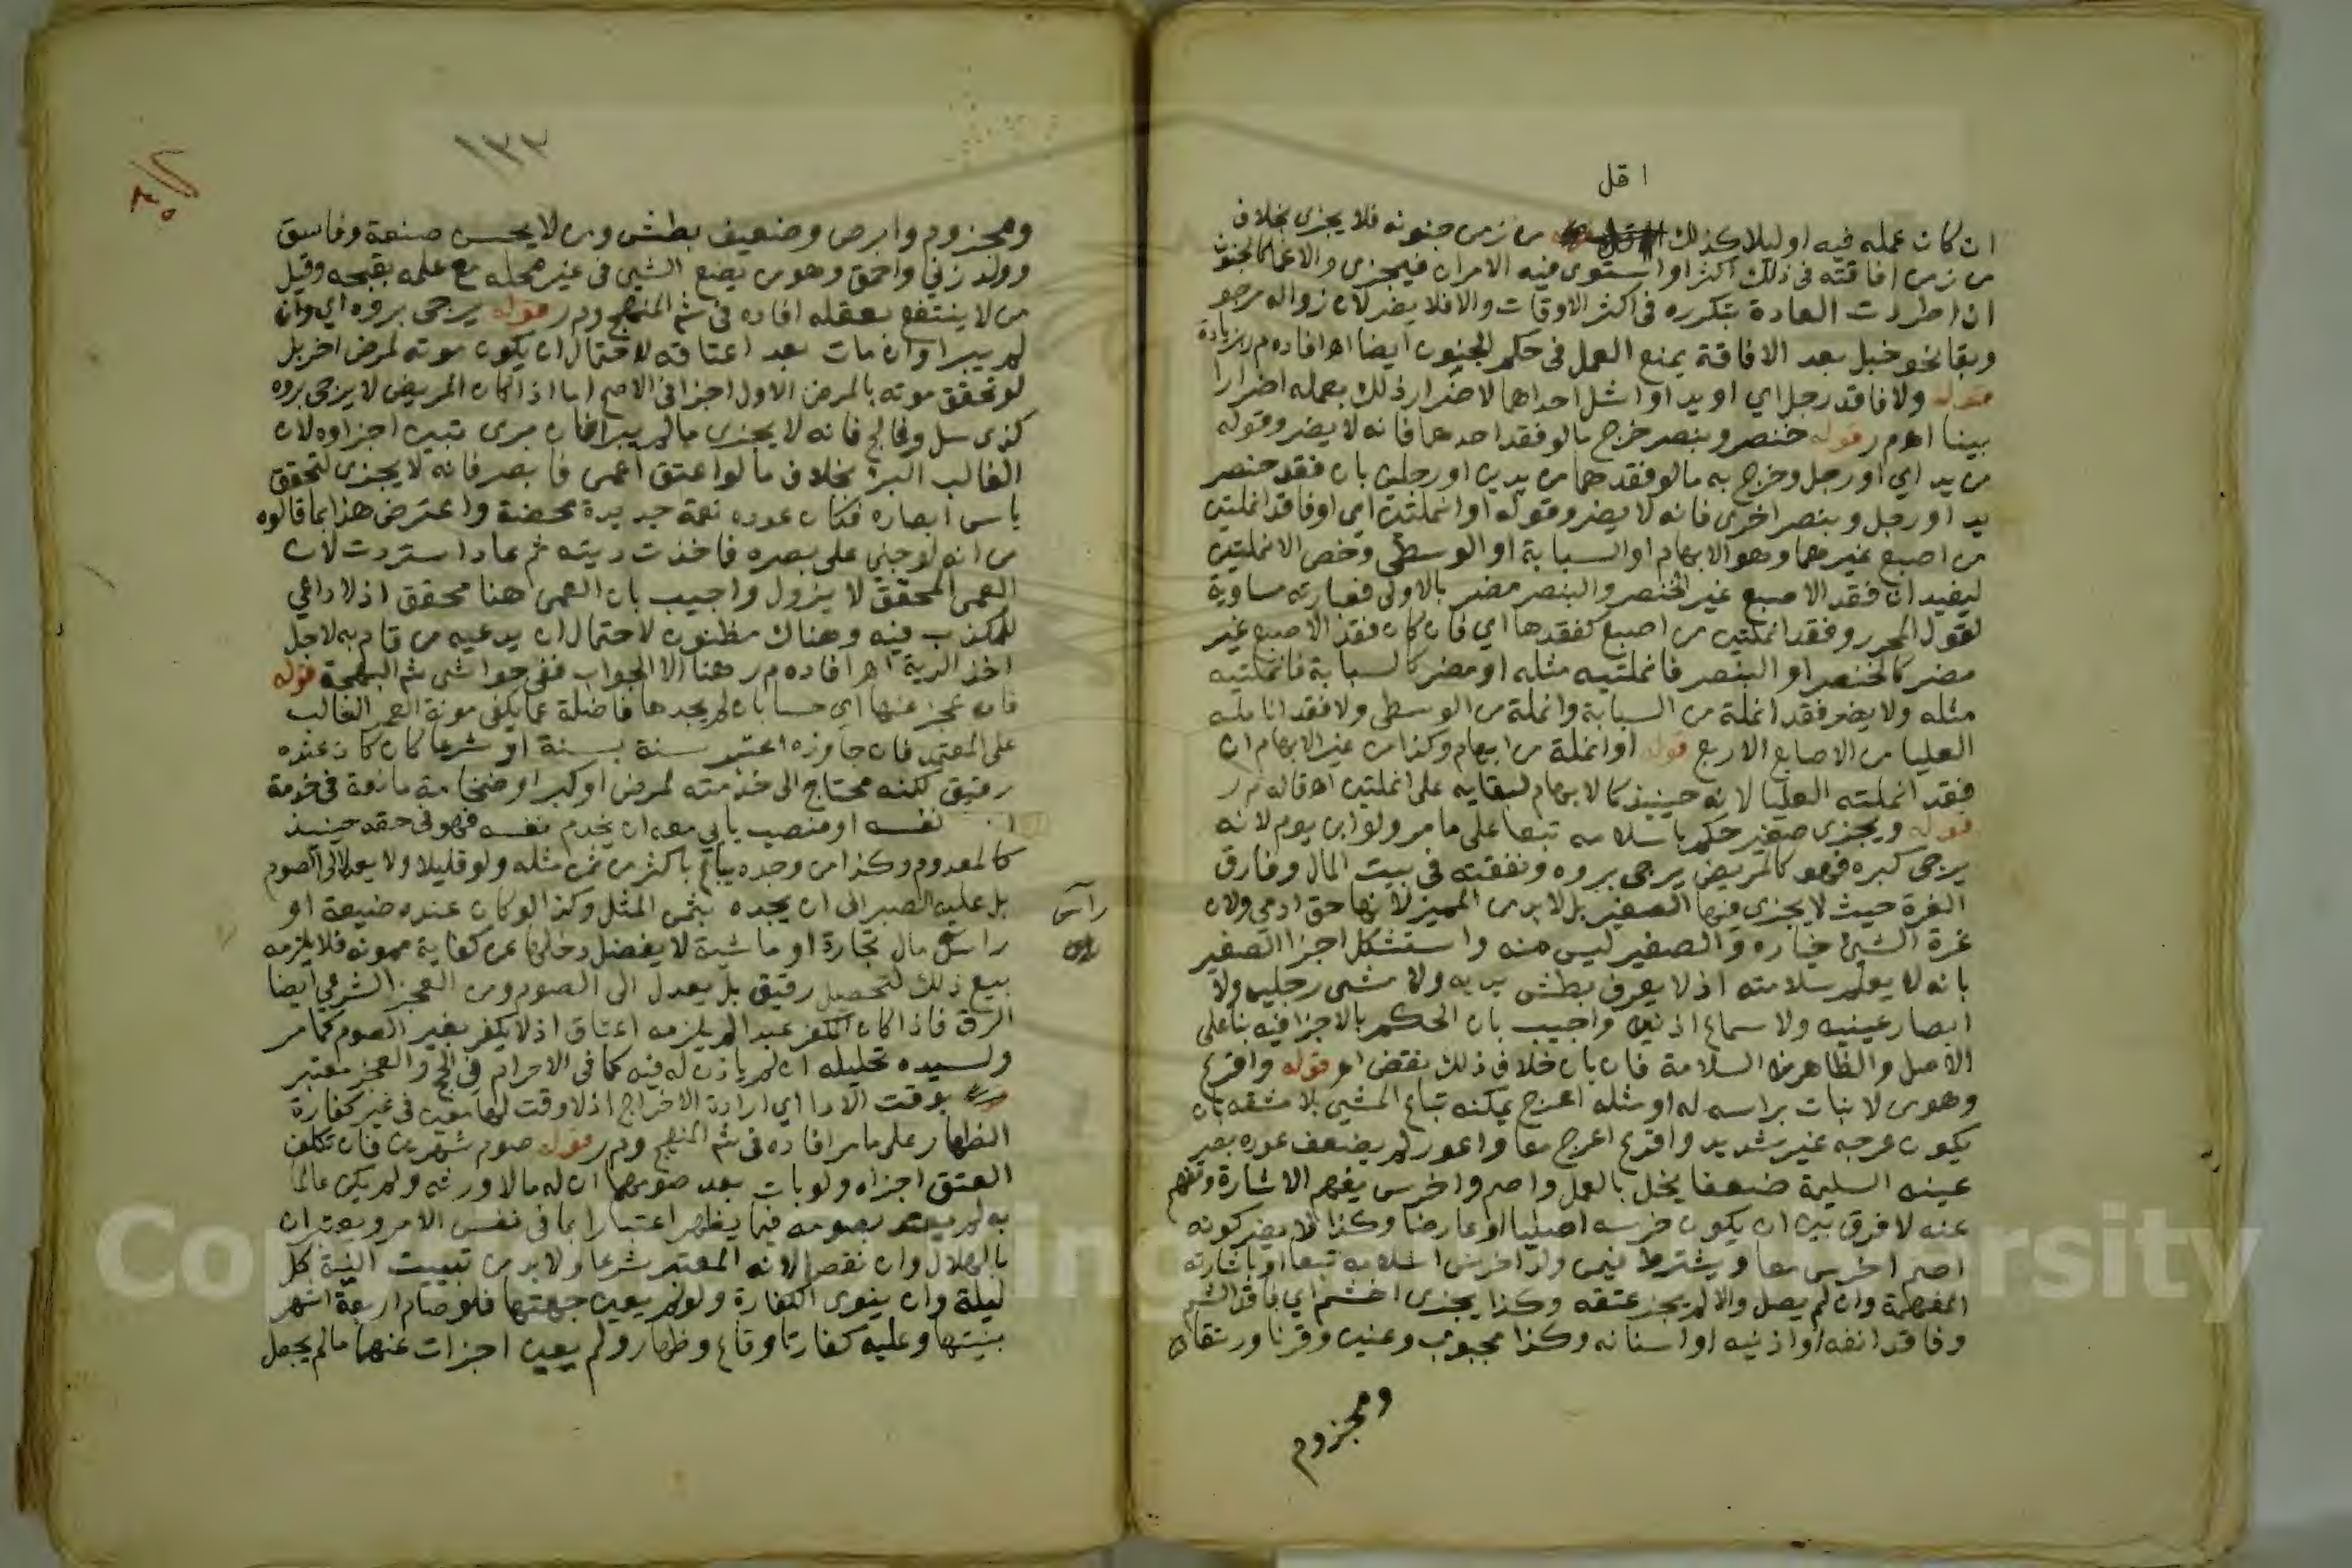 اقل
ان كان عمله فيه او ليلا كذلك من زمن جنونه فلا يجزى بخلاف
من زمن افاقته فى ذلك اكثر او استوى فيه الامران فيجزى والاغما كالجنون
ان اطردت العادة بتكرره فى اكثر الاوقات والا فلا يضر لان زواله مرجو
وبقا نحو خبل بعد الافاقة يمنع العمل فى حكم الجنون ايضا اه افاده م ر بزيادة
قوله ولا فاقد رجل اي او يد او اشل احداهما لاضرار ذلك بعمله اضرارا
بينا اه م ر قوله خنصر وبنصر خرج ما لو فقد احدهما فانه لا يضر وقوله
من يد اي او رجل وخرج به ما لو فقدهما من يدين او رجلين بان فقد خنصر
يد او رجل وبنصر اخرى فانه لا يضر وقوله او انملتين اي او فاقد انملتين
من اصبع غيرهما وهو الابهام او السبابة او الوسطى وخص الانملتين
ليفيد ان فقد الاصبع غير الخنصر والبنصر مضر بالاولى فعبارته مساوية
لقول المحرر وفقد انملتين من اصبع كفقدها اي فان كان فقد الاصبع غير
مضر كالخنصر او البنصر فانملتيه مثله او مضر كالسبابة فانملتيه
مثله ولا يضر فقد انملة من السبابة وانملة من الوسطى ولا فقد انامله
العليا من الاصابع الاربع قوله او انملة من ابهام وكذا من غير الابهام ان
فقد انملته العليا لانه حينيذ كالابهام لبقايه على انملتين اه قاله م ر
قوله ويجزى صغير حكم باسلامه تبعا على ما مر ولو ابن يوم لانه
يرجى كبره فهو كالمريض يرجى بروه ونفقته فى بيت المال وفارق
الغرة حيث لا يجزى فيها الصغير بل لا بد من المميز لانها حق ادمي ولان
غرة الشيئ خياره والصغير ليس منه واستشكل اجزا الصغير
بانه لا يعلم سلامته اذ لا يعرف بطش يديه ولا مشى رجليه ولا
ابصار عينيه ولا سماع اذنيه واجيب بان الحكم بالاجزا فيه بنا على
الاصل والظاهر من السلامة فان بان خلاف ذلك نقض اه قوله واقرع
وهو من لا نبات براسه له او مثله اعرج يمكنه تباع المشي بلا مشقه بان
يكون عرجه غير شديد واقرع اعرج معا واعور لم يضعف عوره بصر
عينه السليمة ضعفا يخل بالعمل واصم واخرس يفهم الاشارة وتفهم
عنه لا فرق بين ان يكون خرسه اصليا او عارضا وكذا لا يضر كونه
اصم اخرس معا ويشترط فيمن ولد اخرس اسلامه تبعا او باشارته
المفهمة وان لم يصل والا لم يجز عتقه وكذا يجزى اخشم اي فاقد الشم
وفاقد انفه او اذنيه او اسنانه وكذا مجبوب وعنين وقرنا ورتقا
ومجزوم
١٣٣
ومجزوم وابرص وضعيف بطش ومن لا يحسن صنعة وفاسق
وولد زنى واحمق وهو من يضع الشيى فى غير محله مع علمه بقبحه وقيل
من لا ينتفع بعقله افاده فى شم المنهج وم ر قوله يرجى بروه اي وان
لم يبرا وان مات بعد اعتاقه لاحتمال ان يكون موته لمرض اخر بل
لو تحقق موته بالمرض الاول اجزا فى الاصح اما اذا كان المريض لا يرجى بروه
كذى سل وفالج فانه لا يجزى ما لم يبرا فان برى تبين اجزاوه لان
الغالب البر بخلاف ما لو اعتق اعمى فابصر فانه لا يجزى لتحقق
ياس ابصاره فكان عوده نعمة جديدة محضة واعترض هذا بما قالوه
من انه لو جنى على بصره فاخذت ديته ثم عاد استردت لان
العمى المحقق لا يزول واجيب بان العمى هنا محقق اذ لا داعي
للكذب فيه وهناك مظنون لاحتمال ان يدعيه من قام به لاجل
اخذ الدية اه افاده م ر هنا الا الجواب ففى حواشى شم البهجة قوله
فان عجز عنها اي حسا بان لم يجدها فاضلة عما يكفى مونة العمر الغالب
على المعتمد فان جاوزه اعتبر سنة بسنة او شرعا كان كان عنده
رقيق لكنه محتاج الى خدمته لمرض او كبر او ضخامة مانعة فى خدمة
نفسه او منصب يابي معه ان يخدم نفسه فهو فى حقه حينيذ
كالمعدوم وكذا من وجده يباع باكثر من ثمن مثله ولو قليلا ولا يعدل الى الصوم
بل عليه الصبر الى ان يجده بثمن المثل وكذا لو كان عنده ضيعة او
راس
راس مال تجارة او ماشية لا يفضل دخلها عن كفاية ممونه فلا يلزمه
بيع ذلك لتحصيل رقيق بل يعدل الى الصوم ومن العجز الشرعي ايضا
الرق فاذا كان المكفر عبدا لم يلزمه اعتاق اذ لا يكفر بغير الصوم كما مر
ولسيده تحليله ان لم ياذن له فيه كما فى الاحرام فى الحج والعجز معتبر
بوقت الادا اي ارادة الاخراج اذ لا وقت لها معين فى غير كفارة
الظهار على ما مر افاده فى شم المنهج وم ر قوله صوم شهرين فان تكلف
العتق اجزاه ولو بان بعد صومهما ان له مالا ورثه ولم يكن عالما
به لم يعتد بصومه فيما يظهر اعتبارا بما فى نفس الامر ويعتبران
بالهلال وان نقصا لانه المعتبر شرعا ولا بد من تبييت النية كل
ليلة وان ينوى الكفارة ولو لم يعين جهتها فلو صام اربعة اشهر
بنيتها وعليه كفارتا وقاع وظهار ولم يعين اجزات عنهما ما لم يجعل